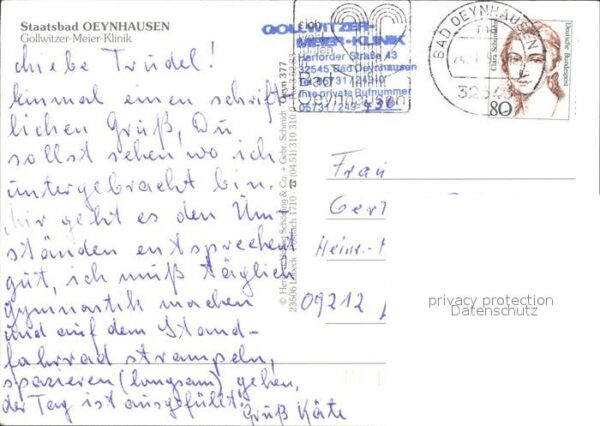 Staatsbad OEYNHAUSEN
Gollwitzer-Meier-Klinik
Liebe Trudel!
Einmal einen schrift-
lichen Gruß, Du
sollst sehen wo ich
untergebracht bin.
Mir geht es den Um-
ständen entsprechend
gut, ich muß täglich
gymnastik machen
und auf dem Stand-
fahrrad strampeln,
spazieren (langsam) gehen,
der Tag ist ausgefüllt!
Gruß Käte
GOLLWITZER-
MEIER-KLINIK
Herforder Straße 43
32545 Bad Oeynhausen
Tel. 05731/
Ihre private Rufnummer
05731/249- 430
Bad
Oeynhausen
BAD OEYNHAUSEN
Clara Schumann
Deutsche Bundespost
80
Oeyn 377
Frau
Gert
Heinr.-
09212
privacy protection
Datenschutz